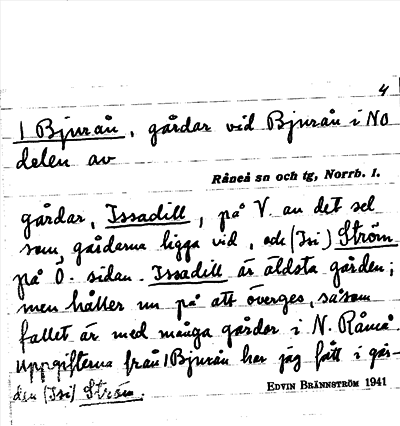 4
1 Bjurån, gårdar vid Bjurån i NO
delen av
Råneå sn och tg, Norrb. l.
gårdar, Issadill, på V. av det sel
som gårdarna ligga vid, och (Isi) Ström
på Ö. sidan. Issadill är äldsta gården;
men håller nu på att överges, såsom
fallet är med många gårdar i N. Råneå.
Uppgifterna från 1 Bjurån har jag fått i går-
den (Isi) Ström.
EDVIN BRÄNNSTRÖM 1941